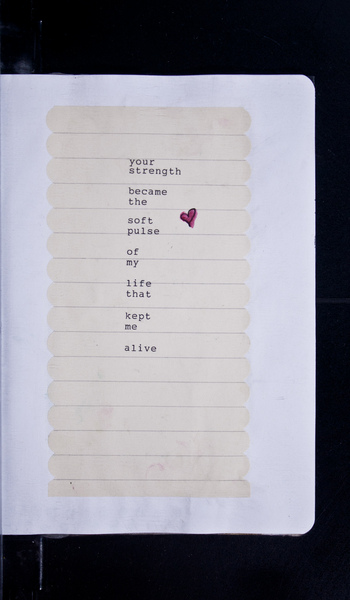 your
strength
became
the
soft
pulse
of
my
life
that
kept
me
alive